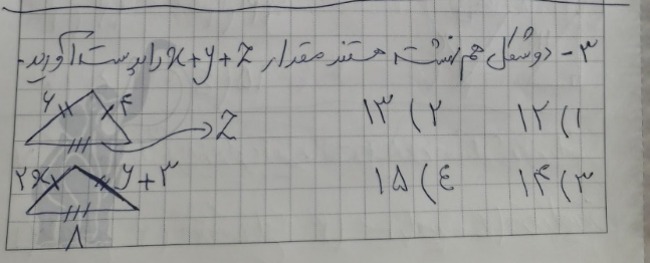 ۳- دو شکل هم نهشت هستند مقدار x+y+z را بدست آورید.
۱) ۱۲
۲) ۱۳
۳) ۱۴
۴) ۱۵
۶ ۴
z
۲x y+۳
۸